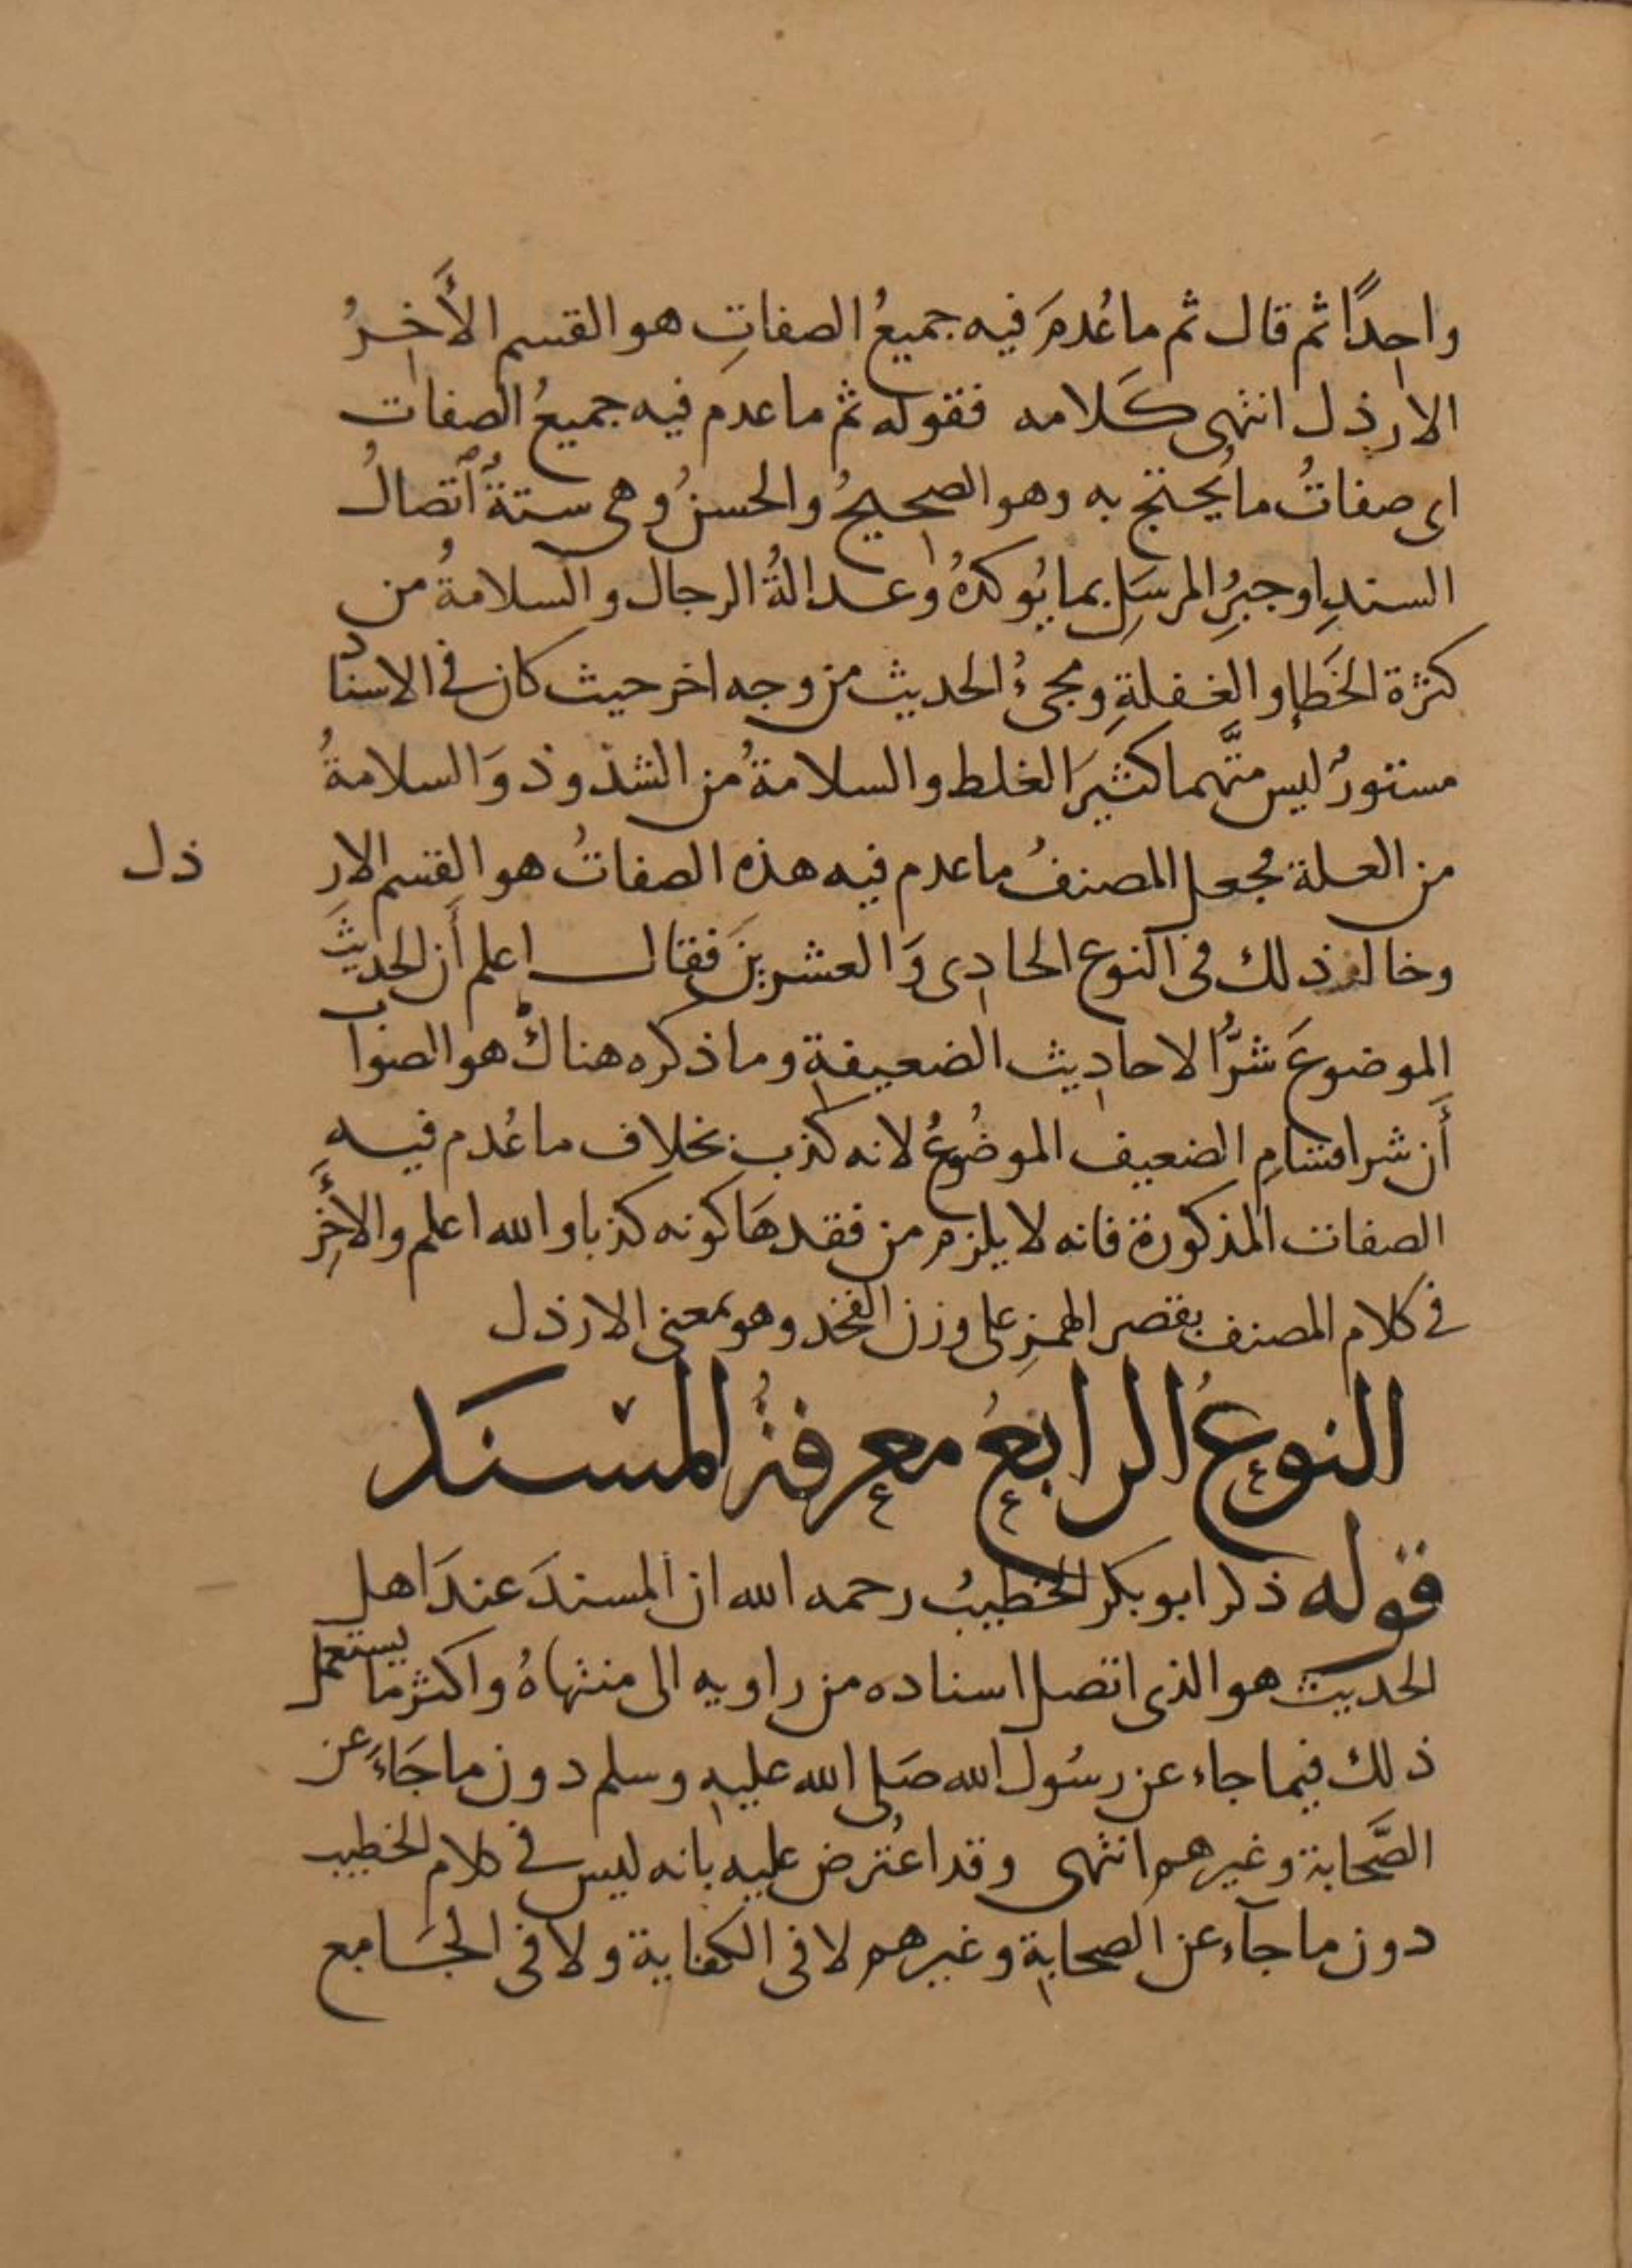 واحدًا ثم قال ثم ما عُدمَ فيه جميعُ الصفاتِ هو القسم الأَخِرُ
الارذل انتهى كَلامه فقوله ثم ما عدم فيه جميعُ الصفات
اى صفاتُ ما يُحتج به وهو الصحيحُ والحسنُ وهى ستةٌ اتصالُ
السندِ او جبرُ المرسَلِ بما يُوكدُهُ وعدالةُ الرجال والسلامةُ من
كثرة الخَطإِ والغفلةِ ومجىُ الحديث من وجه اخر حيث كان فى الاسناد
مستورٌ ليس متَّهما كثيرَ الغلط والسلامةُ من الشذوذ وَالسلامةُ
من العلة فجعل المصنفُ ما عدم فيه هذه الصفاتُ هو القسم الارذل
وخالف ذلك فى النوع الحادى وَالعشرينَ فقال اعلم أَن الحديثَ
الموضوعَ شرُّ الاحاديث الضعيفةِ وما ذكره هناك هو الصواب
أَن شر اقسامِ الضعيف الموضُوعُ لانه كذب بخلاف ما عُدم فيه
الصفات المذكورة فانه لا يلزم من فقدهَا كونه كذبا والله اعلم والأَخِرُ
فى كلام المصنف بقصر الهمزِ على وزن الفخذ وهو بمعنى الارذل
النوعُ الرابعُ معرفةُ المسْنَد
قوله ذكر ابو بكر الخطيبُ رحمه الله ان المسندَ عندَ اهل
الحديث هو الذى اتصل اسناده من راويه الى منتهاهُ واكثر ما يستعمل
ذلك فيما جاء عن رسُول الله صَلى الله عليهِ وسلم دون ما جَاءَ عن
الصَّحابة وغيرهم انتهى وقد اعتُرض عليه بانه ليس فى كلام الخطيب
دون ما جآء عن الصحابةِ وغيرهم لا فى الكفاية ولا فى الجَامع